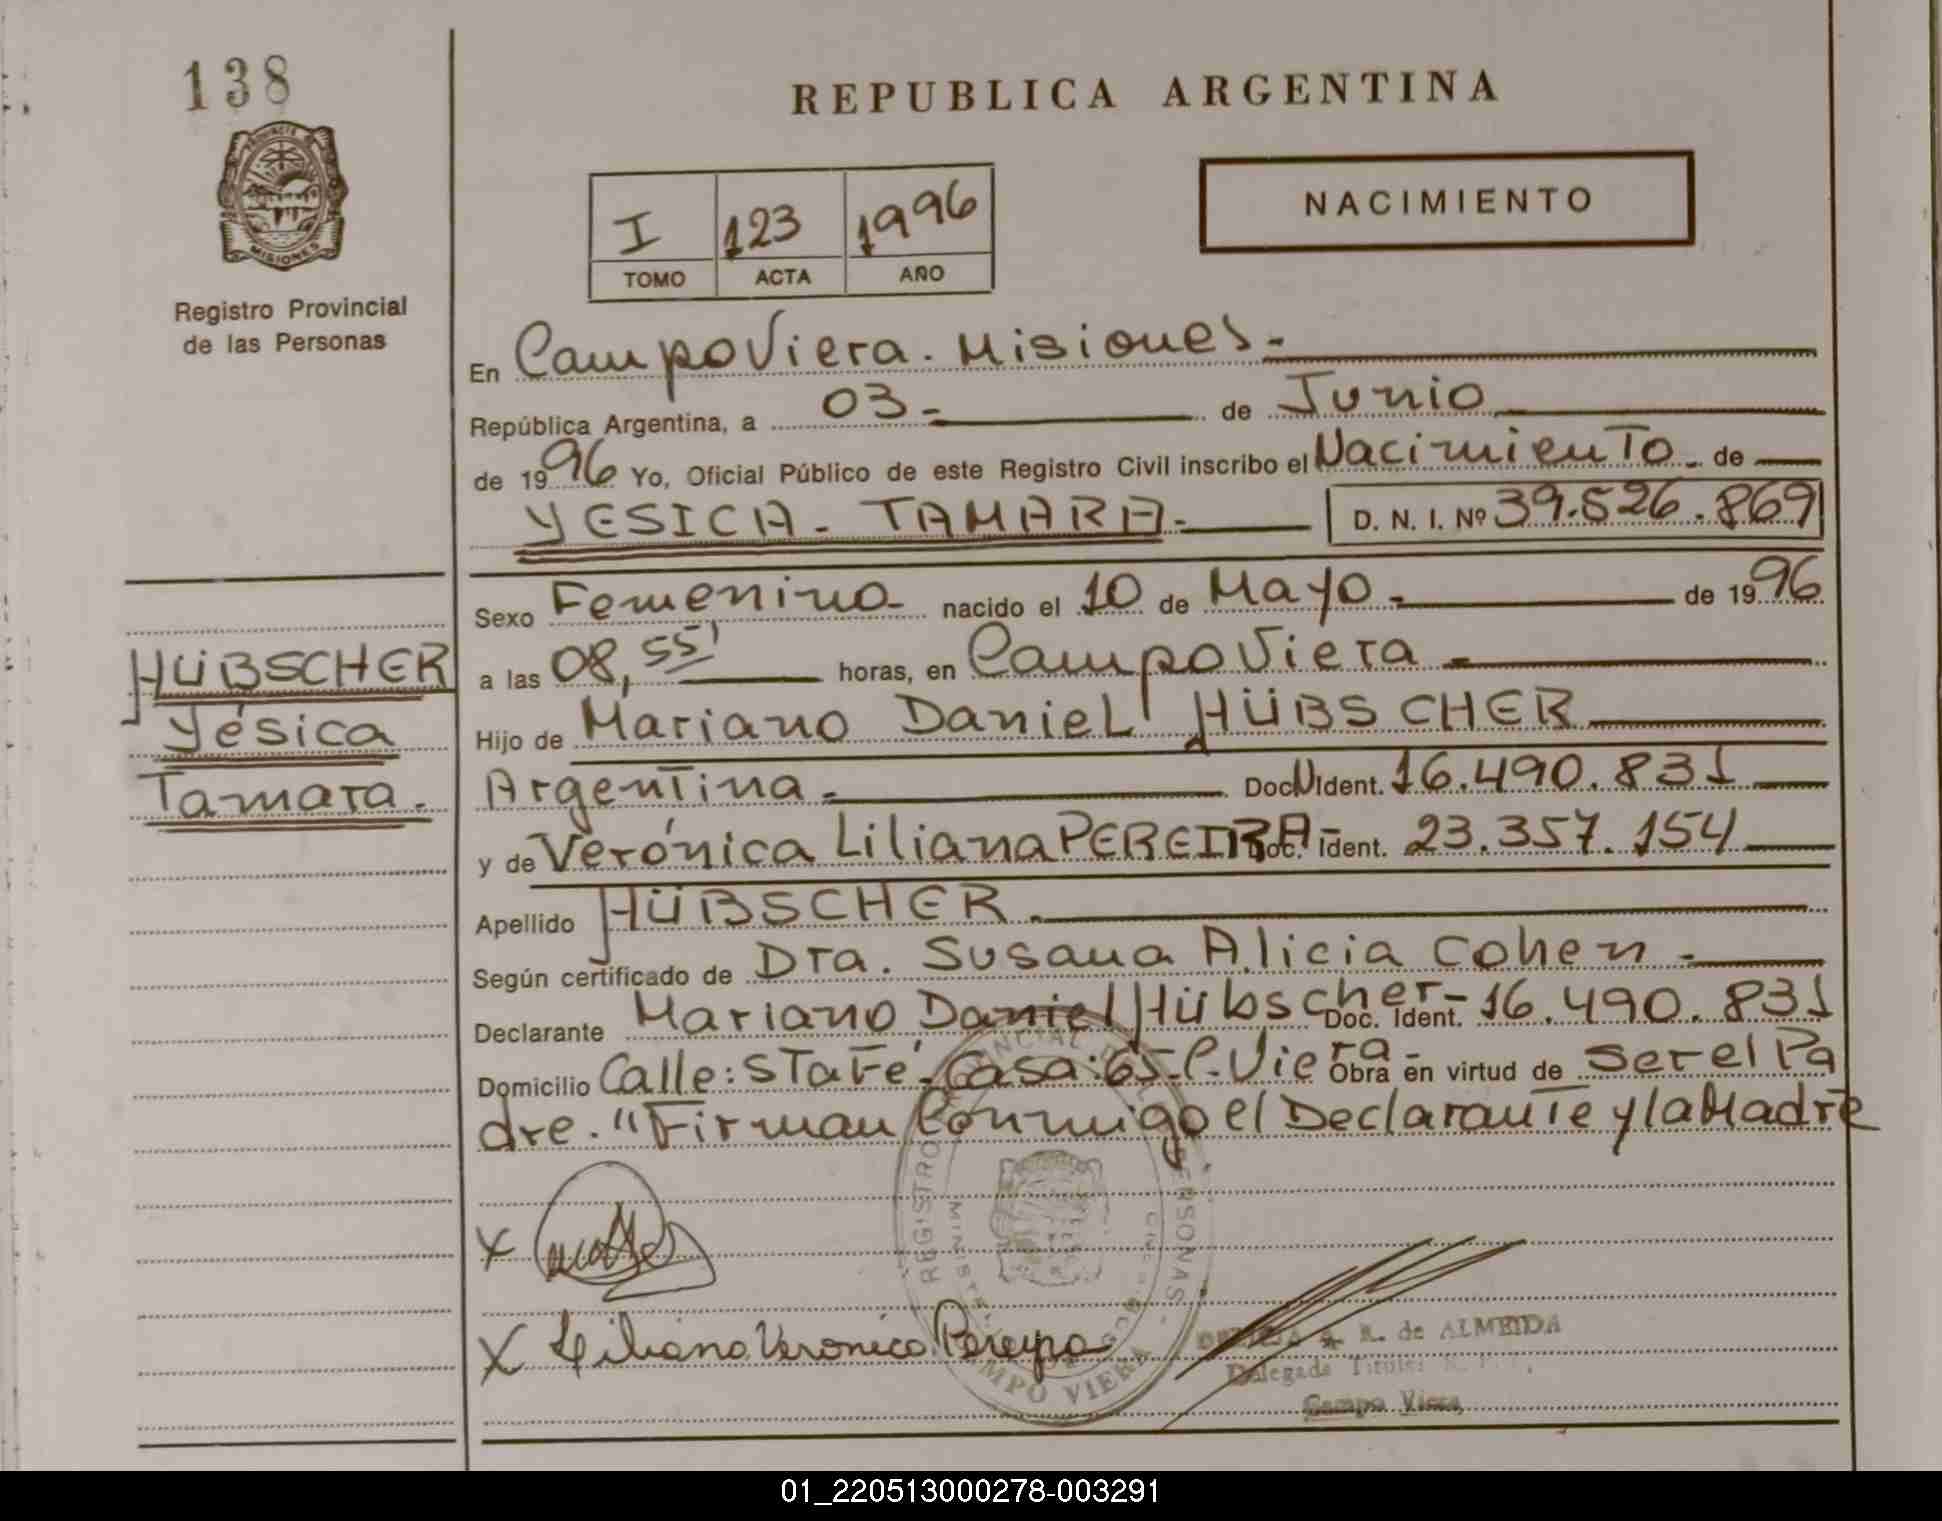 138
PROVINCIA DE
MISIONES
Registro Provincial
de las Personas
REPUBLICA ARGENTINA
I 123 1996
TOMO ACTA AÑO
NACIMIENTO
En Campo Viera. Misiones.-
República Argentina, a 03- de Junio
de 1996 Yo, Oficial Público de este Registro Civil inscribo el Nacimiento - de
YESICA - TAMARA - D. N. I. Nº 39.526.869
Sexo Femenino - nacido el 10 de Mayo - de 1996
HÜBSCHER
Yésica
Tamara.
a las 08,55' horas, en Campo Viera -
Hijo de Mariano Daniel HÜBSCHER
Argentina - Doc N Ident. 16.490.831
y de Verónica Liliana PEREIRA - Doc. Ident. 23.357.154
Apellido HÜBSCHER.
Según certificado de Dra. Susana Alicia Cohen -
Declarante Mariano Daniel Hübscher - Doc. Ident. 16.490.831
Domicilio Calle: Sta Fé - Casa: 65 - C. Viera - Obra en virtud de Ser el Pa
dre. "Firman Conmigo el Declarante y la Madre
X
X Liliana Veronica Pereyra
REGISTRO PERSONAS
CAMPO VIERA
R. de ALMEIDA
Delegada Titular
Campo Viera
01_220513000278-003291